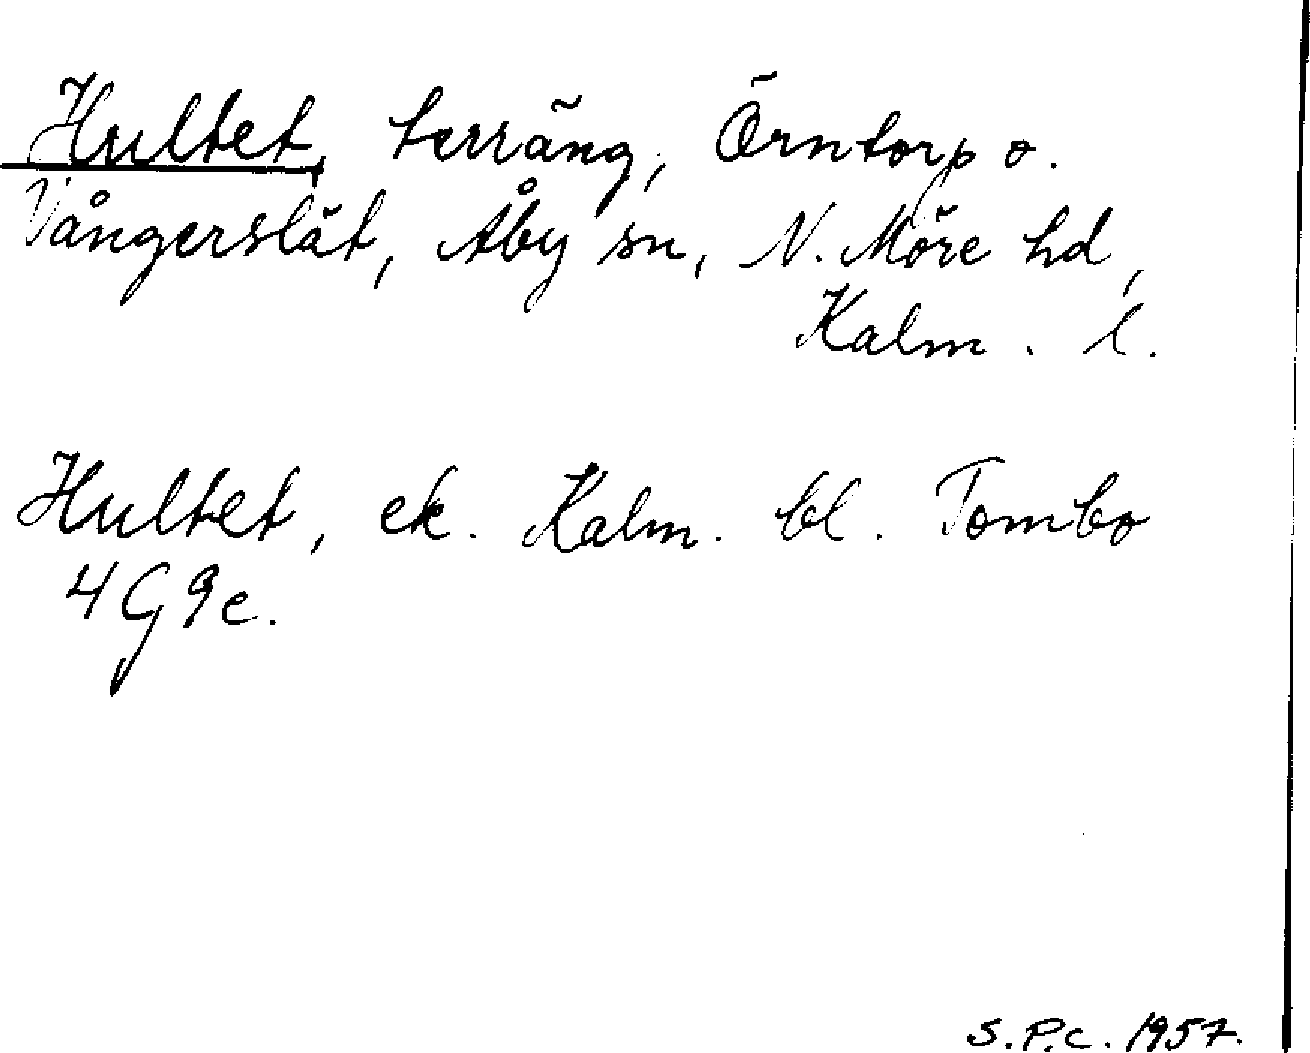 Hultet, terräng, Örntorp o.
Vångerslät, Åby sn, N. Möre hd,
Kalm. l.
Hultet, ek. Kalm. bl. Tombo
4G9e.
S.P.C. 1957.